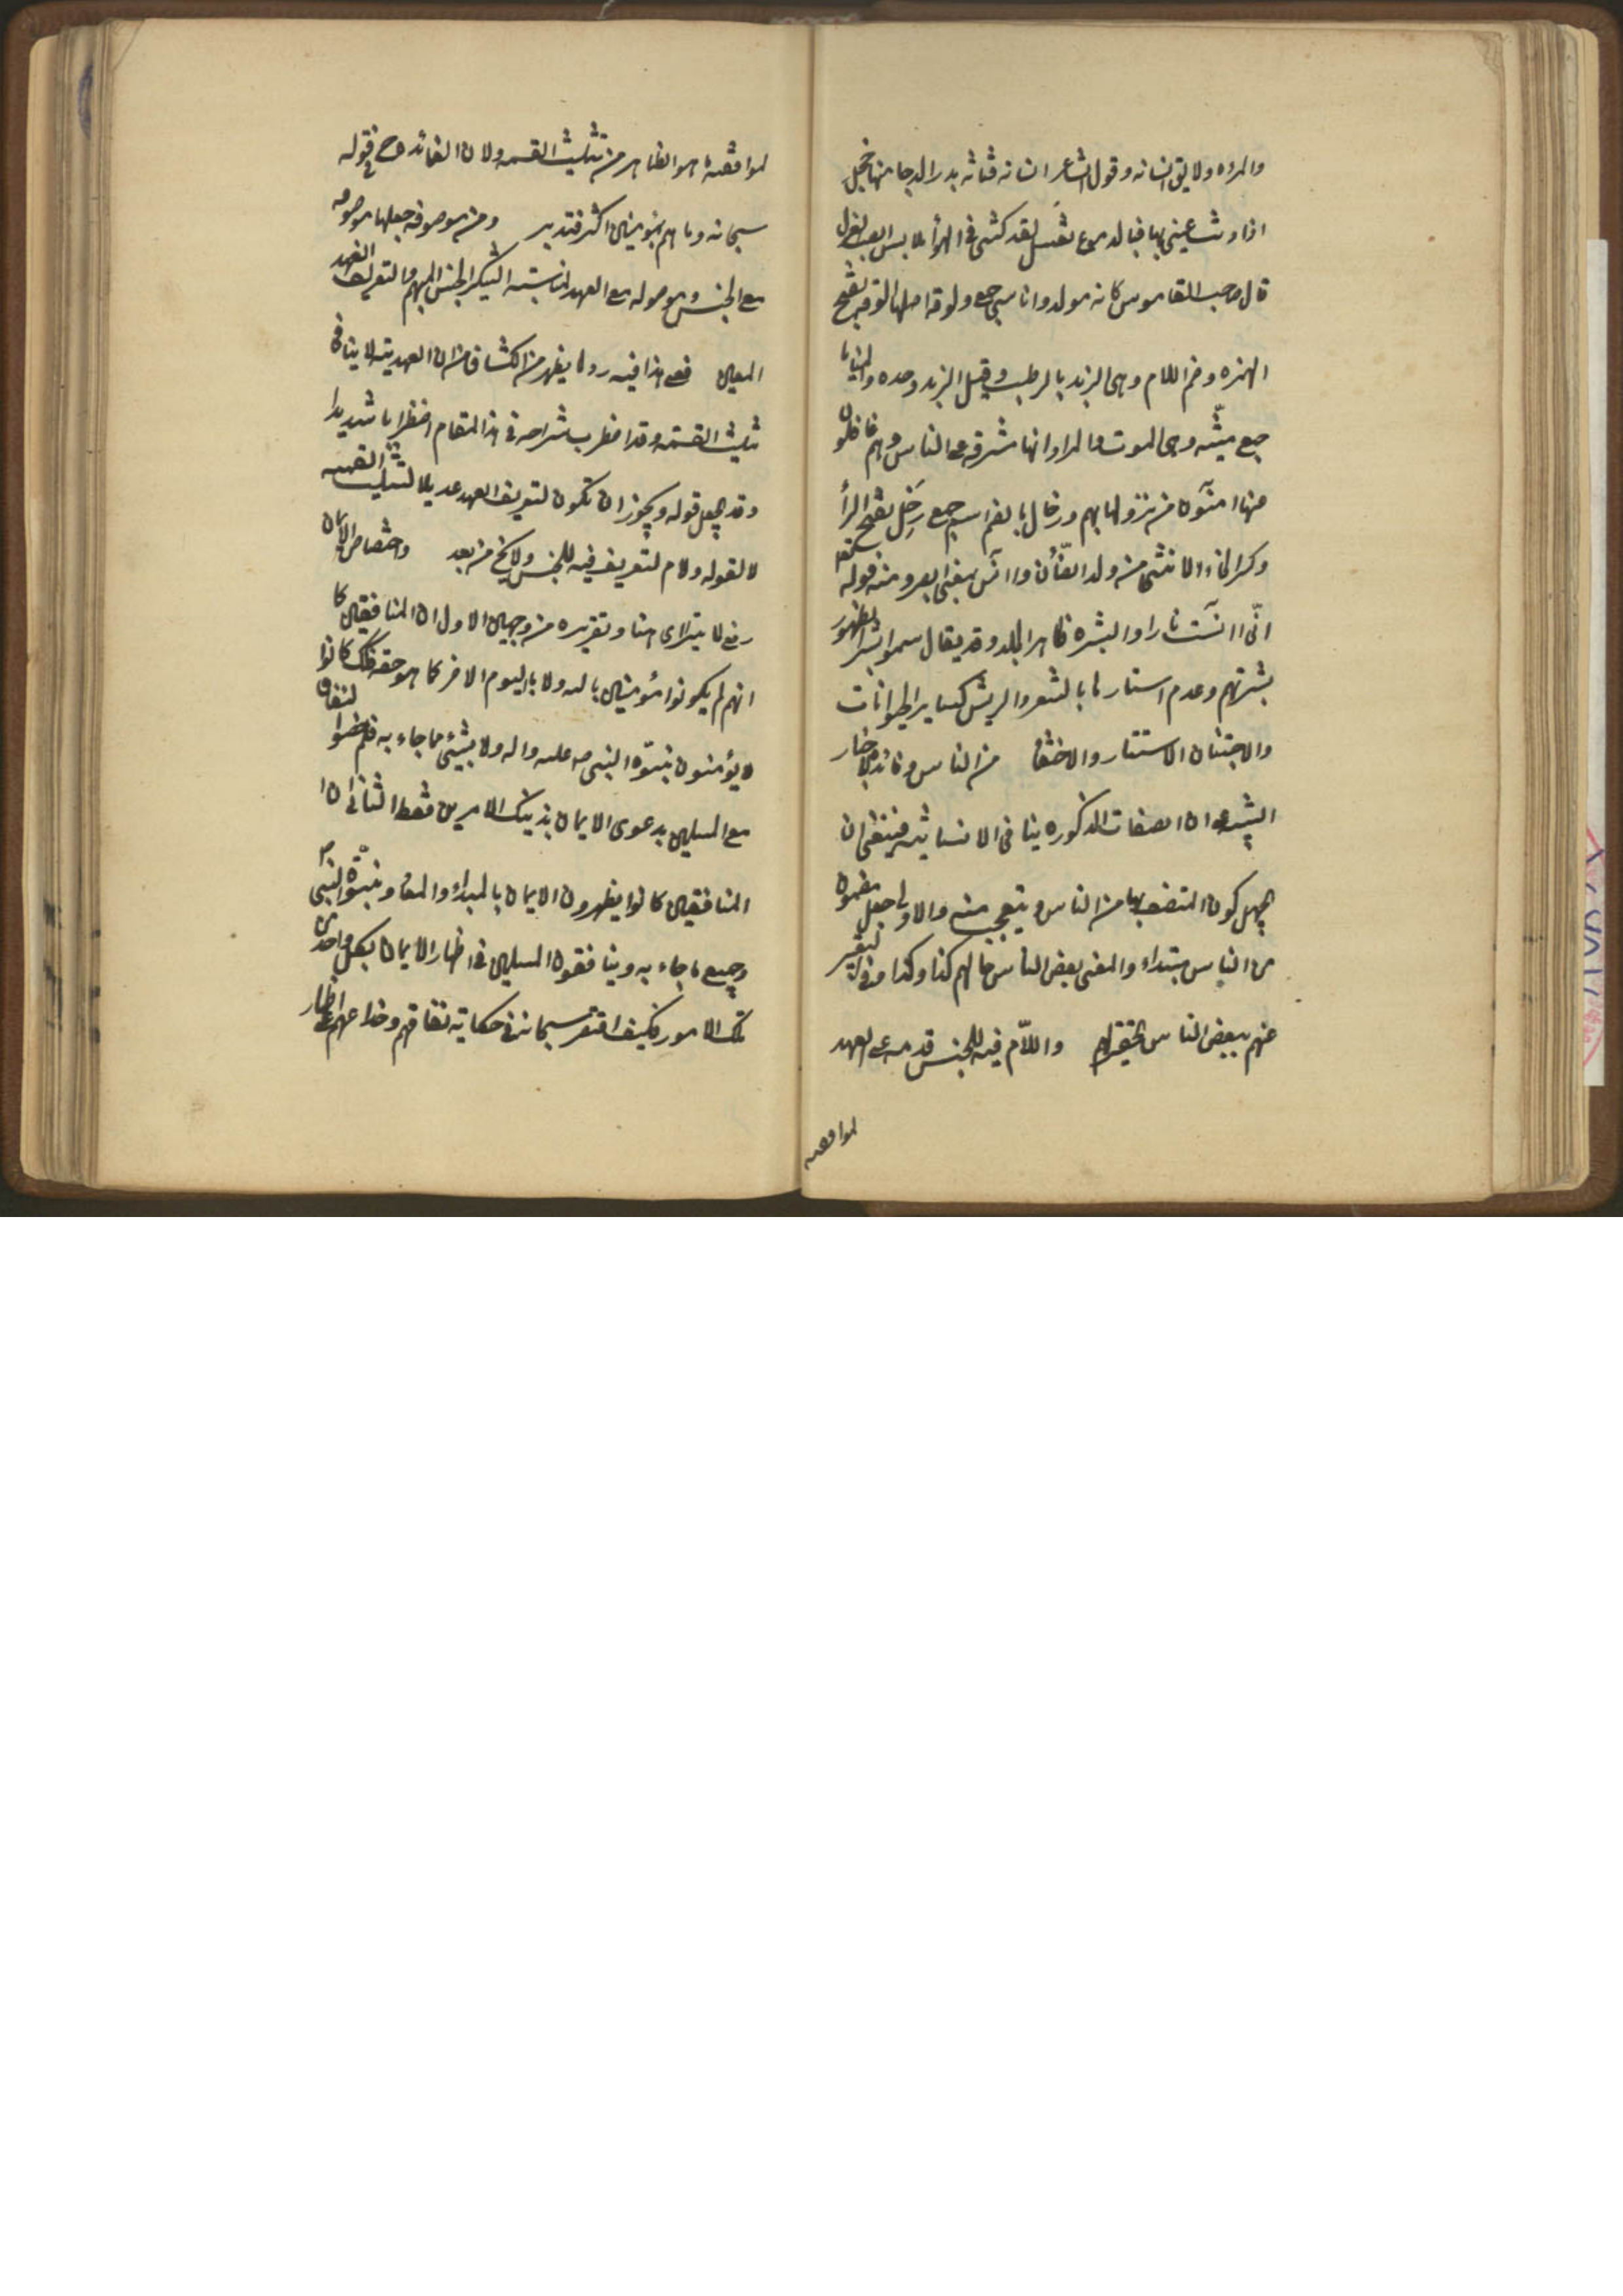 والمرأه ولا يق انسانه وقول الشاعر انسانه فتانه بدر الدجا منها خجل
اذا زنت عيني بها فبالدموع تغتسل لقد كستني في الهوا ملابس الصب الغزل
قال صاحب القاموس كانه مولد واناسي جمع ولوقه اصلها الوقه بفتح
الهمزه وضم اللام وهي الزبد بالرطب وقيل الزبد وحده والمنايا
جمع منيّه وهي الموت والمراد انها مشرفه على الناس وهم غافلون
عنها امنون من نزولها بهم ورخال بالضم اسم جمع رَخِل بفتح الرأ
وكسر الخاء الانثى من ولد الضأن وآنس بمعنى ابصر ومنه قوله تعالى
انّي آنست نارا والبشره ظاهر الجلد وقد يقال سموا بشرا لظهور
بشرتهم وعدم استتارها بالشعر والريش كساير الحيوانات
والاجتنان الاستتار والاختفا من الناس وفائده الاخبار
التنبيه ان الصفات المذكوره ينافي الانسانيه فينبغي ان
يجهل كون المتصف بها من الناس ويتعجب منه والاولى جعل مضمون
من الناس مبتداء والمعنى بعض الناس حالهم كذا وكذا وفي التعبير
عنهم ببعض الناس تحقير لهم واللاّم فيه للجنس قدمه على العهد
لموافقته
لموافقته ما هو الظاهر من تثليث القسمه ولان الفائده ح في قوله
سبحانه وما هم بمؤمنين اكثر فتدبر ومن موصوفه جعلها موصوفه
مع الجنس وموصوله مع العهد لمناسبته التنكير الجنس المبهم والتعريف العهد
المعين فعلى هذا فيه رد لما يظهر من الكشاف من ان العهديه لا ينافي
تثليث القسمه وقد اضطرب شراحه في هذا المقام اضطرابا شديدا
وقد يجعل قوله ويجوز ان تكون لتعريف العهد عديلا لتثليث القسمه
لا لقوله ولام لتعريف فيه للجنس ولا يخ من بعد واختصاص الايمان
رفع لا يترااى هنا وتقريره من وجهين الاول ان المنافقين كما
انهم لم يكونوا مؤمنين بالله ولا باليوم الاخر كما هو حقه فكذلك كانوا
لا يؤمنون بنبوّه النبي ص عليه واله ولا بشيئ مما جاء به فلم خصوا النفاق
مع المسلمين بدعوى الايمان بذينك الامرين فقط الثاني ان
المنافقين كانوا يظهرون الايمان بالمبداء والمعاد وبنبوّه النبي ص
وجميع ما جاء به وينافقون المسلمين في اظهار الايمان بكل واحد من
تلك الامور فكيف اقتصر سبحانه في حكايته نفاقهم وخداعهم على اظهار